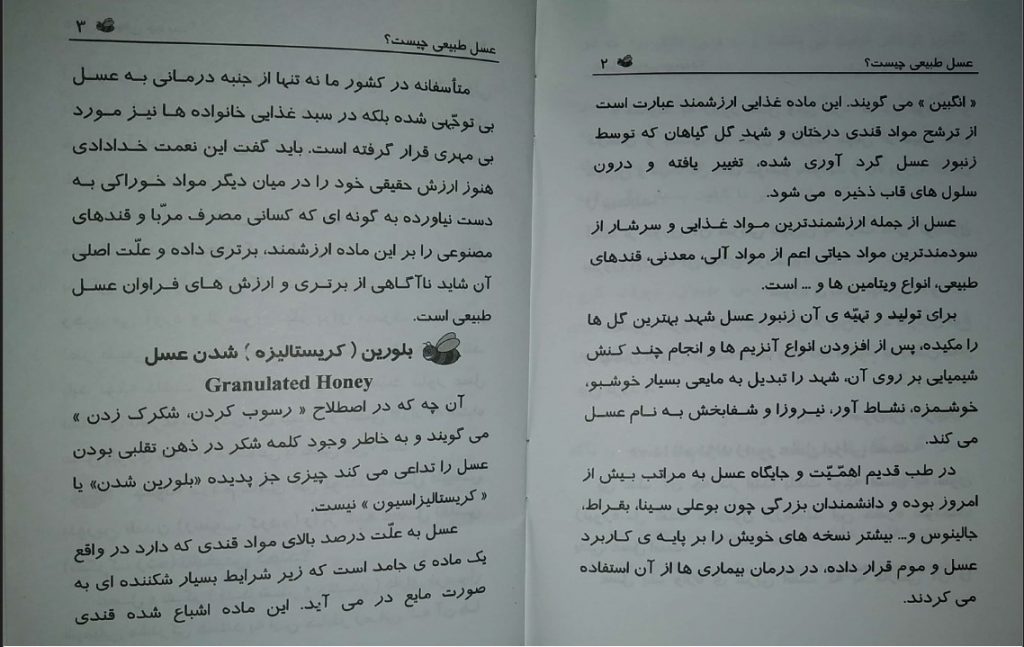 عسل طبیعی چیست؟ ۲
« انگبین » می گویند. این ماده غذایی ارزشمند عبارت است
از ترشح مواد قندی درختان و شهدِ گل گیاهان که توسط
زنبور عسل گرد آوری شده، تغییر یافته و درون
سلول های قاب ذخیره می شود.
عسل از جمله ارزشمندترین مـواد غذایی و سرشار از
سودمندترین مواد حیاتی اعم از مواد آلی، معدنی، قندهای
طبیعی، انواع ویتامین ها و ... است.
برای تولید و تهیّه ی آن زنبور عسل شهد بهترین گل ها
را مکیده، پس از افزودن انواع آنزیم ها و انجام چند کنش
شیمیایی بر روی آن، شهد را تبدیل به مایعی بسیار خوشبو،
خوشمزه، نشاط آور، نیروزا و شفابخش به نام عسل
می کند.
در طب قدیم اهمّیّت و جایگاه عسل به مراتب بیش از
امروز بوده و دانشمندان بزرگی چون بوعلی سینا، بقراط،
جالینوس و... بیشتر نسخه های خویش را بر پایه ی کاربرد
عسل و موم قرار داده، در درمان بیماری ها از آن استفاده
می کردند.
عسل طبیعی چیست؟ ۳
متأسفانه در کشور ما نه تنها از جنبه درمانی به عسل
بی توجّهی شده بلکه در سبد غذایی خانواده ها نیز مورد
بی مهری قرار گرفته است. باید گفت این نعمت خدادادی
هنوز ارزش حقیقی خود را در میان دیگر مواد خوراکی به
دست نیاورده به گونه ای که کسانی مصرف مربّا و قندهای
مصنوعی را بر این ماده ارزشمند، برتری داده و علّت اصلی
آن شاید ناآگاهی از برتری و ارزش های فراوان عسل
طبیعی است.
بلورین ( کریستالیزه ) شدن عسل
Granulated Honey
آن چه که در اصطلاح « رسوب کردن، شکرک زدن »
می گویند و به خاطر وجود کلمه شکر در ذهن تقلبی بودن
عسل را تداعی می کند چیزی جز پدیده «بلورین شدن» یا
« کریستالیزاسیون » نیست.
عسل به علّت درصد بالای مواد قندی که دارد در واقع
یک ماده ی جامد است که زیر شرایط بسیار شکننده ای به
صورت مایع در می آید. این ماده اشباع شده قندی